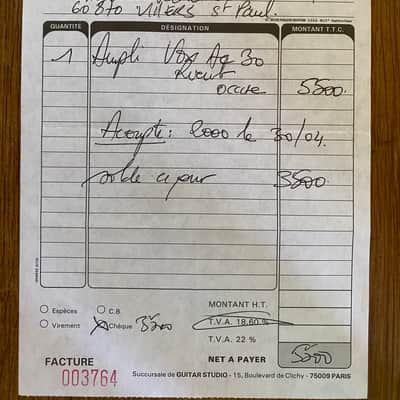 60 870 VILLERS St Paul
QUANTITÉ DÉSIGNATION MONTANT T.T.C.
1 Ampli Vox AC 30
occase 5500.
Acompte : 2000 le 30/04.
solde à jour 3500.
MONTANT H.T.
Espèces C.B.
T.V.A. 18,60 %
Virement Chèque 3500
T.V.A. 22 %
NET A PAYER 5500
FACTURE
003764
Succursale de GUITAR STUDIO - 15, Boulevard de Clichy - 75009 PARIS